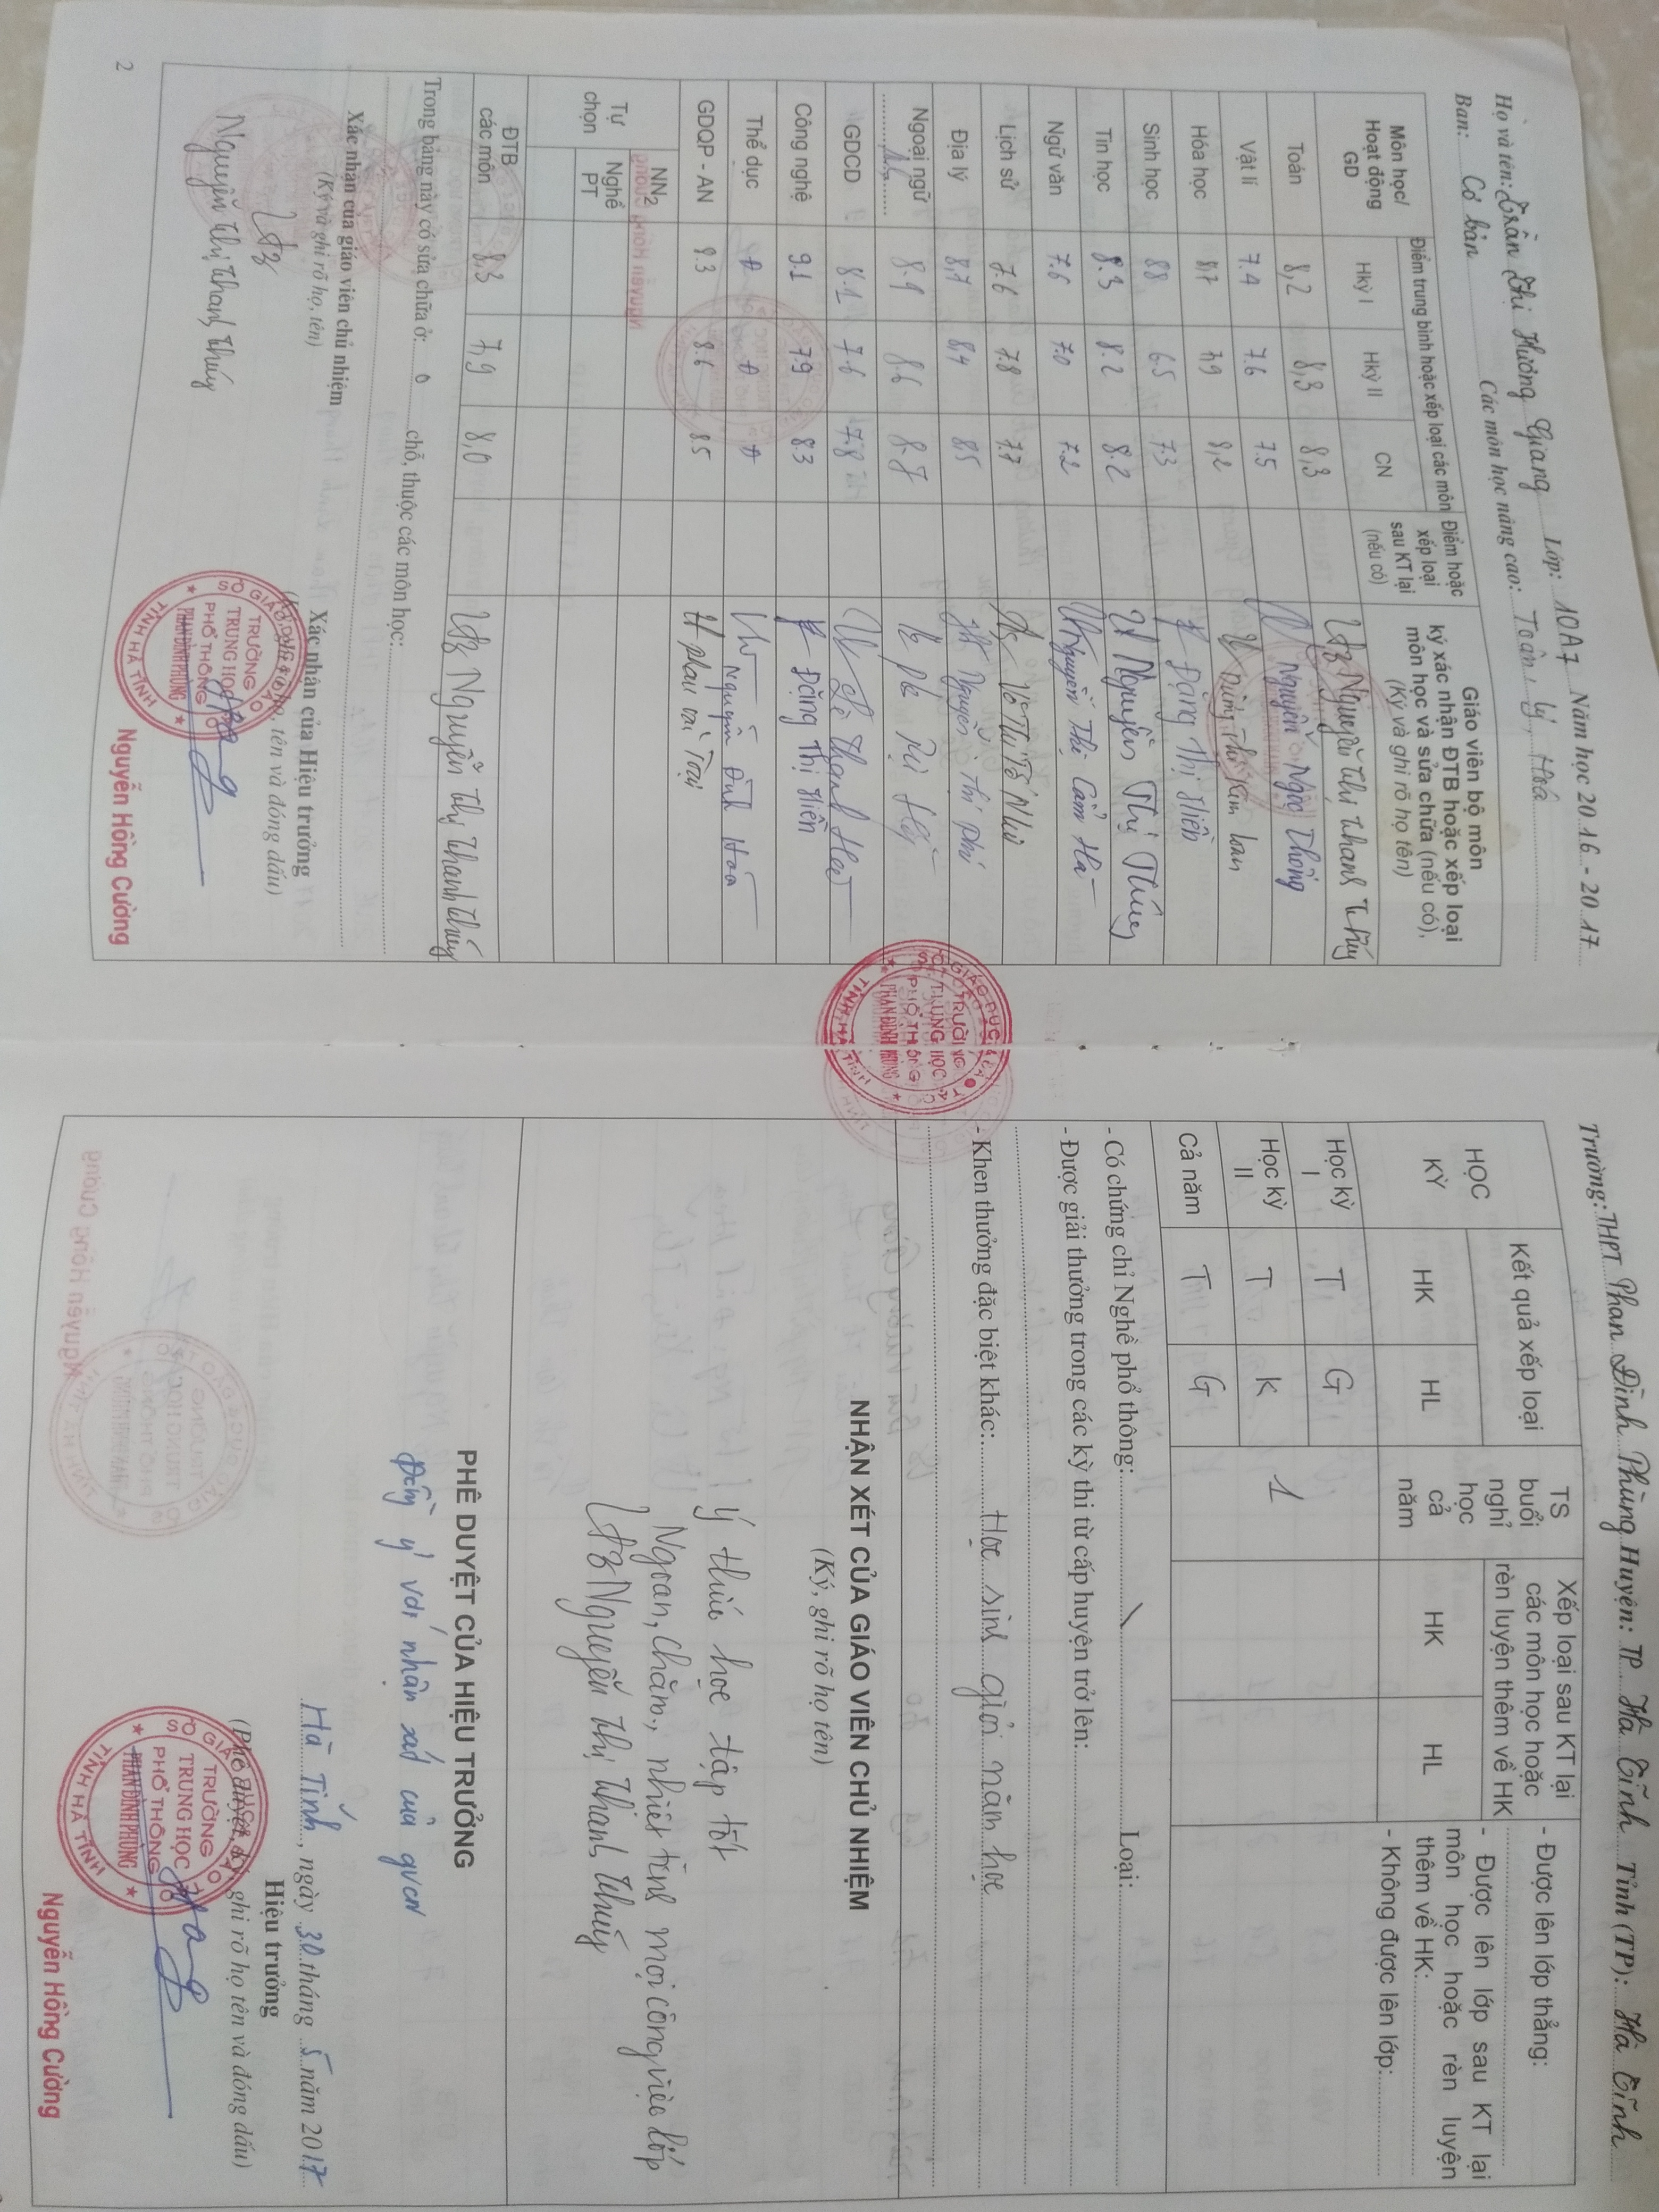 Họ và tên: Trần Thị Hương Giang Lớp: 10A7 Năm học 2016 - 2017
Ban: Cơ bản Các môn học nâng cao: Toán, Lý, Hoá
Môn học/ Hoạt động GD
Điểm trung bình hoặc xếp loại các môn
Hkỳ I Hkỳ II CN
Điểm hoặc xếp loại sau KT lại (nếu có)
Giáo viên bộ môn ký xác nhận ĐTB hoặc xếp loại môn học và sửa chữa (nếu có),
(Ký và ghi rõ họ tên)
Toán 8,2 8,3 8,3 Nguyễn Thị Thanh Thúy
Vật lí 7.4 7.6 7.5 Nguyễn Ngọc Thống
Hóa học 8,7 7,9 8,2 Kim Loan
Sinh học 88 6.5 7.3 Đặng Thị Hiền
Tin học 8.3 8.2 8.2 Nguyễn Thị
Ngữ văn 7.6 7.0 7.2 Nguyễn Thị Cẩm Hà
Lịch sử 7.6 7.8 7.7 Võ Thị Tố Như
Địa lý 8,7 8,4 8,5 Nguyễn Thị
Ngoại ngữ 8.9 8.6 8.7
GDCD 8.1 7.6 7.8 Lê Thanh
Công nghệ 9.1 7.9 8.3 Đặng Thị Hiền
Thể dục Đ Đ Đ Nguyễn Đình Hoá
GDQP - AN 8.6 8.5 Phan
Tự chọn
NN2
Nghề PT
ĐTB các môn 8,3 7,9 8,0 Nguyễn Thị Thanh Thúy
Trong bảng này có sửa chữa ở: 0 chỗ, thuộc các môn học:
Xác nhận của giáo viên chủ nhiệm
(Ký và ghi rõ họ, tên)
Nguyễn Thị Thanh Thúy
Xác nhận của Hiệu trưởng
tên và đóng dấu)
TRƯỜNG
TRUNG HỌC
PHỔ THÔNG
PHAN ĐÌNH PHÙNG
TỈNH HÀ TĨNH
Nguyễn Hồng Cường
2
Trường: THPT Phan Đình Phùng Huyện: TP Hà Tĩnh Tỉnh (TP): Hà Tĩnh
HỌC KỲ
Kết quả xếp loại
HK HL
TS buổi nghỉ học cả năm
Xếp loại sau KT lại các môn học hoặc rèn luyện thêm về HK
HK HL
- Được lên lớp thẳng:
- Được lên lớp sau KT lại môn học hoặc rèn luyện thêm về HK:
- Không được lên lớp:
Học kỳ I T G
Học kỳ II T K 1
Cả năm T G
- Có chứng chỉ Nghề phổ thông: Loại:
- Được giải thưởng trong các kỳ thi từ cấp huyện trở lên:
- Khen thưởng đặc biệt khác: Học sinh giỏi năm học
NHẬN XÉT CỦA GIÁO VIÊN CHỦ NHIỆM
(Ký, ghi rõ họ tên)
Ý thức học tập tốt
Ngoan, chăm, nhiệt tình mọi công việc lớp
Nguyễn Thị Thanh Thúy
PHÊ DUYỆT CỦA HIỆU TRƯỞNG
Đồng ý với nhận xét của gvcn
Hà Tĩnh, ngày 30 tháng 5 năm 2017
Hiệu trưởng
ghi rõ họ tên và đóng dấu)
TRƯỜNG
TRUNG HỌC
PHỔ THÔNG
PHAN ĐÌNH PHÙNG
TỈNH HÀ TĨNH
Nguyễn Hồng Cường